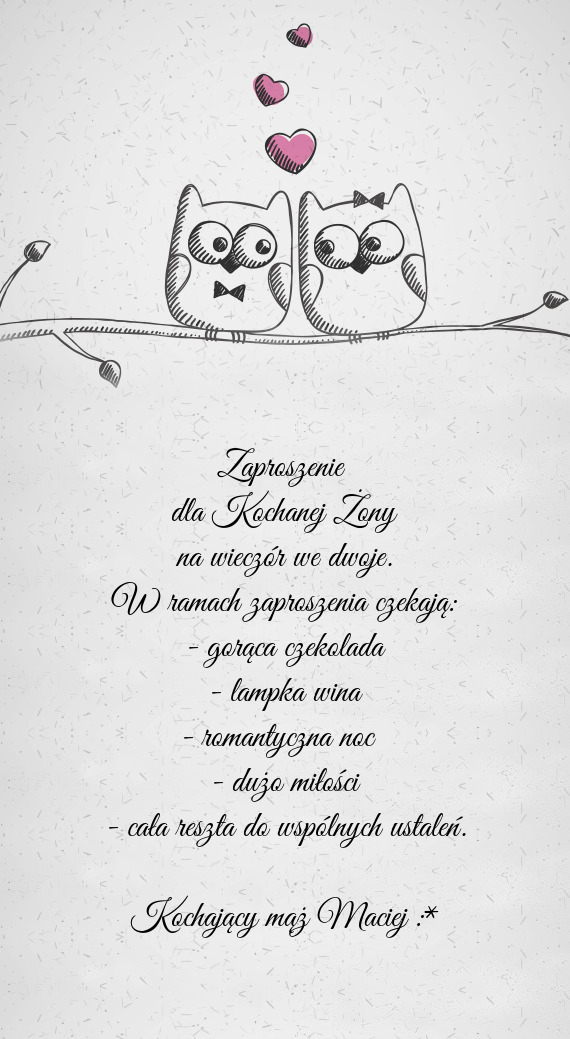 Zaproszenie
dla Kochanej Żony
na wieczór we dwoje.
W ramach zaproszenia czekają:
- gorąca czekolada
- lampka wina
- romantyczna noc
- dużo miłości
- cała reszta do wspólnych ustaleń.
Kochający mąż Maciej :*